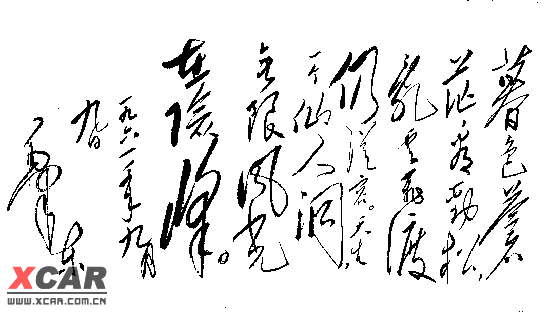 暮色蒼
茫看勁松，
亂雲飛渡
仍從容。天生
一个仙人洞
无限風光
在險峰。
一九六一年九月
九日
毛泽东
XCAR
WWW.XCAR.COM.CN